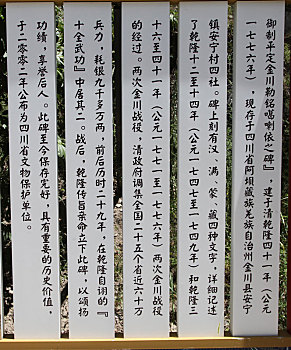 御制平定金川勒铭噶喇依之碑』，建于清乾隆四十一年（公元
一七七六年），现存于四川省阿坝藏族羌族自治州金川县安宁
镇安宁村四社。碑上刻有汉、满、蒙、藏四种文字，详细记述
了乾隆十二至十四年（公元一七四七——一七四九年）和乾隆三
十六至四十一年（公元一七七一至一七七六年）两次金川战役
的经过。两次金川战役，清政府调集全国二十五个省近六十万
兵力，耗银九千多万两，前后历时二十九年，在乾隆自诩的『
十全武功』中居其二。战后，乾隆传旨亲命立下此碑，以颂扬
功绩，享誉后人。此碑至今保存完好，具有重要的历史价值，
于二零零二年公布为四川省文物保护单位。